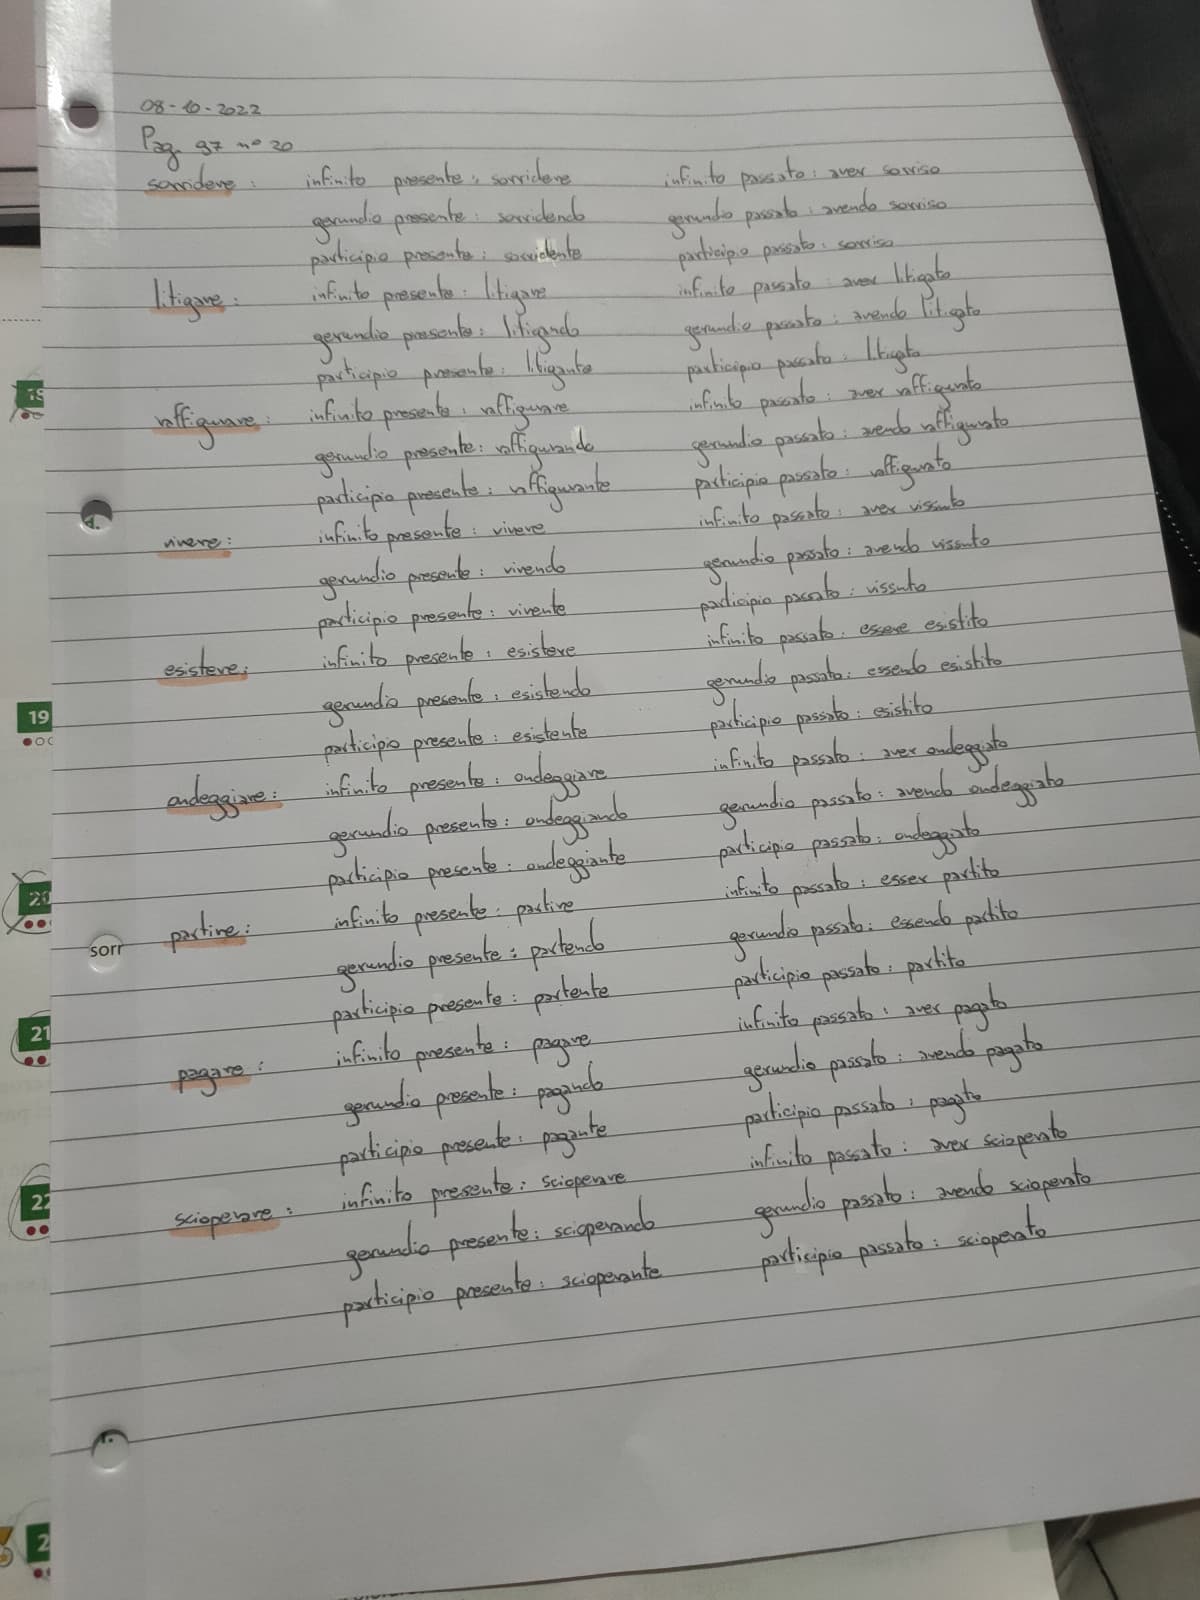 08-10-2022
Pag. 97 n° 20
sorridere: infinito presente: sorridere infinito passato: aver sorriso
gerundio presente: sorridendo gerundio passato: avendo sorriso
participio presente: sorridente participio passato: sorriso
litigare: infinito presente: litigare infinito passato: aver litigato
gerundio presente: litigando gerundio passato: avendo litigato
participio presente: litigante participio passato: litigato
raffigurare: infinito presente: raffigurare infinito passato: aver raffigurato
gerundio presente: raffigurando gerundio passato: avendo raffigurato
participio presente: raffigurante participio passato: raffigurato
vivere: infinito presente: vivere infinito passato: aver vissuto
gerundio presente: vivendo gerundio passato: avendo vissuto
participio presente: vivente participio passato: vissuto
esistere: infinito presente: esistere infinito passato: essere esistito
gerundio presente: esistendo gerundio passato: essendo esistito
participio presente: esistente participio passato: esistito
ondeggiare: infinito presente: ondeggiare infinito passato: aver ondeggiato
gerundio presente: ondeggiando gerundio passato: avendo ondeggiato
participio presente: ondeggiante participio passato: ondeggiato
partire: infinito presente: partire infinito passato: esser partito
gerundio presente: partendo gerundio passato: essendo partito
participio presente: partente participio passato: partito
pagare: infinito presente: pagare infinito passato: aver pagato
gerundio presente: pagando gerundio passato: avendo pagato
participio presente: pagante participio passato: pagato
scioperare: infinito presente: scioperare infinito passato: aver scioperato
gerundio presente: scioperando gerundio passato: avendo scioperato
participio presente: scioperante participio passato: scioperato
19
20
sorr
21
22
2